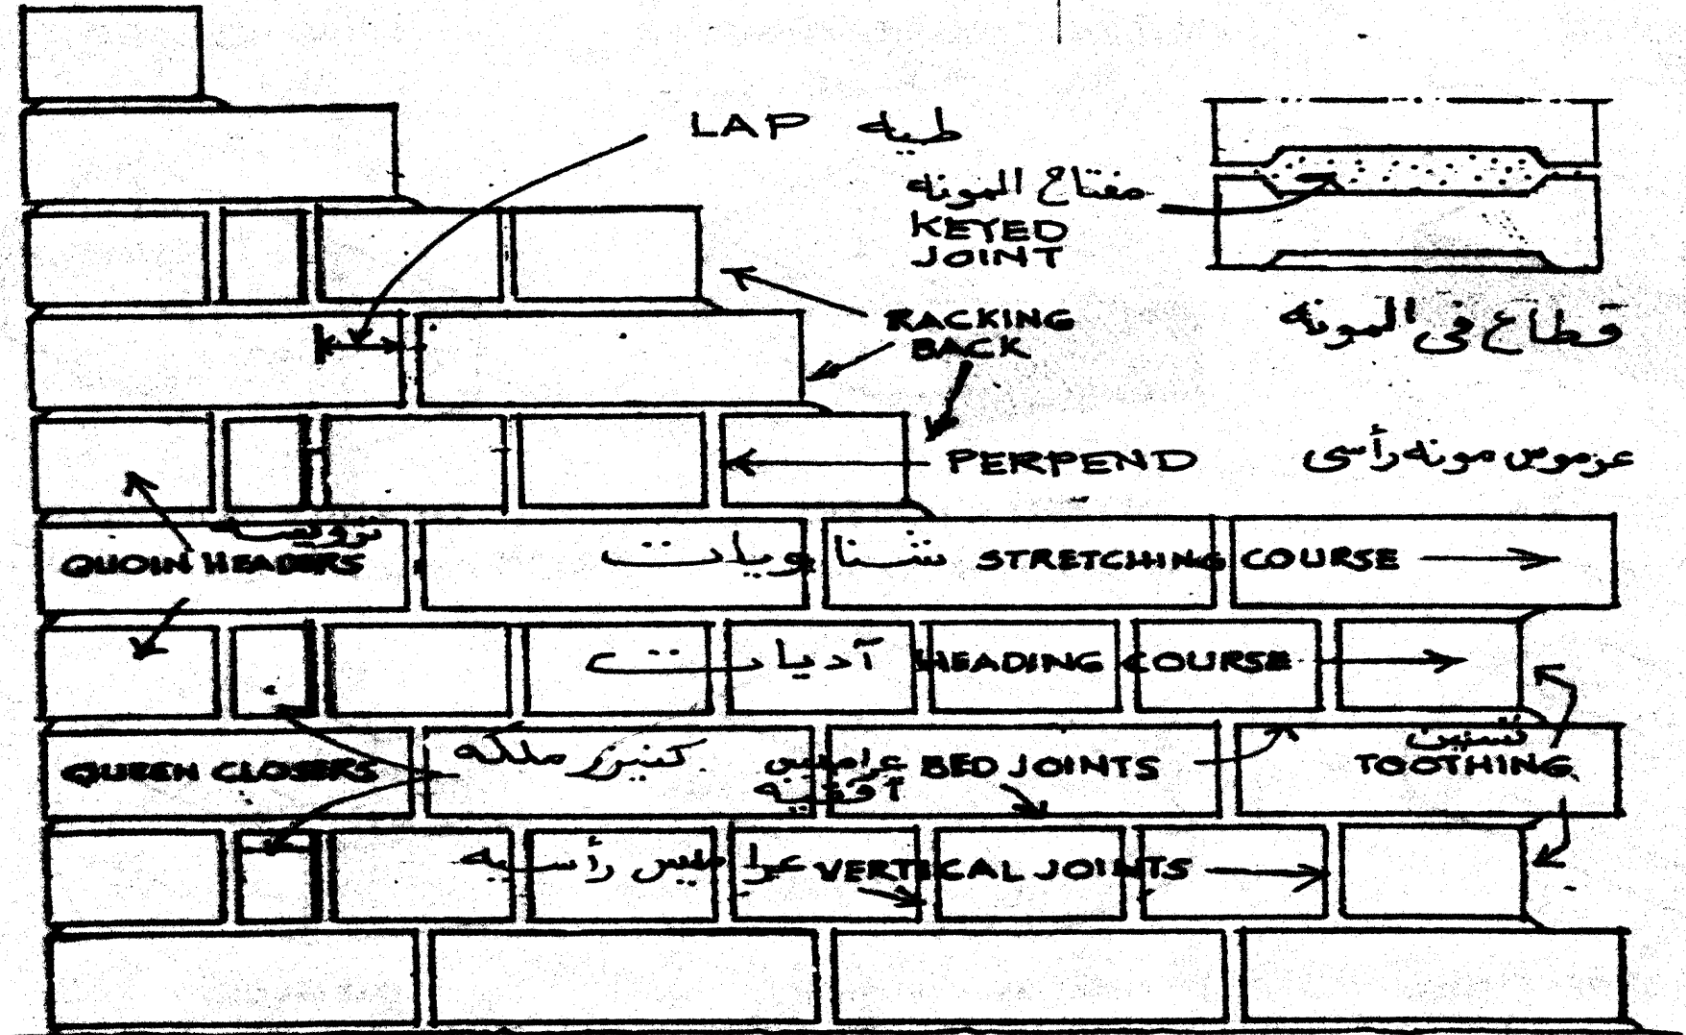 LAP طيه
مفتاح المونه
KEYED
JOINT
RACKING
BACK
قطاع فى المونه
PERPEND
عرموس مونه رأسى
QUOIN HEADERS
شناويات STRETCHING COURSE
آديات HEADING COURSE
QUEEN CLOSERS
كنيزر ملكه
عراميس BED JOINTS
أفقيه
تسنين
TOOTHING
عراميس رأسيه VERTICAL JOINTS